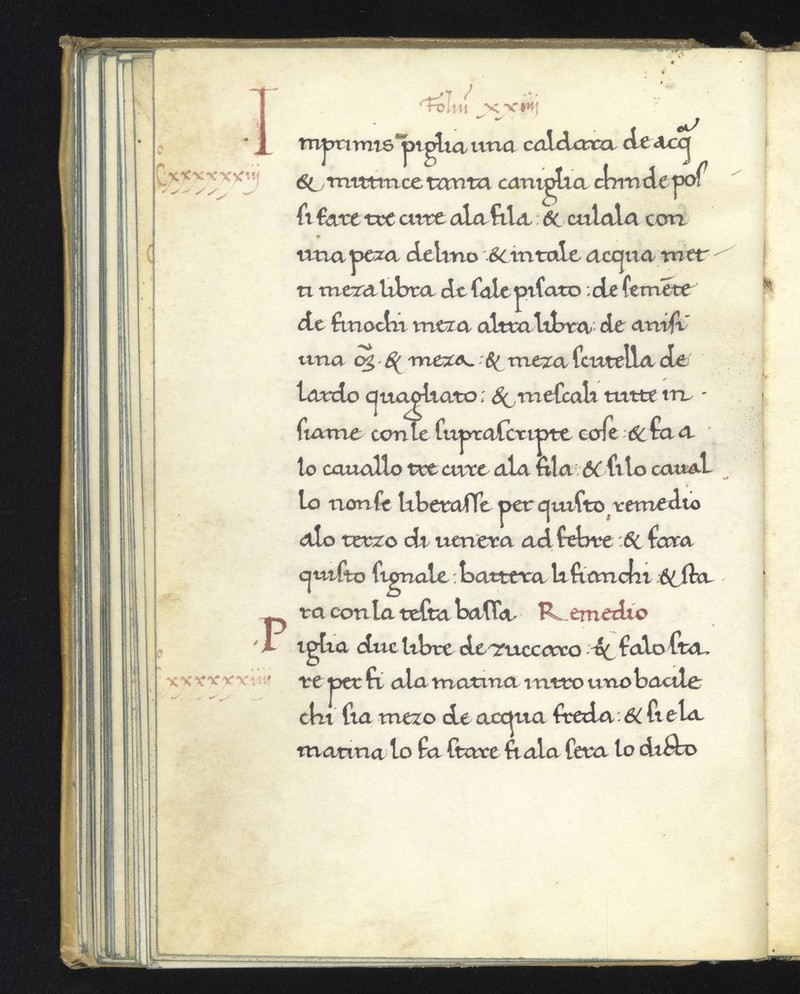 Foliũ xxiiij
Imprimis piglia una caldara de acq̃
& mittince tanta caniglia chinde poſ
ſi fare tre cure ala fila : & culala con
una peza de lino : & in tale acqua met
ti meza libra de ſale piſato : de ſemẽte
de finochi meza altra libra : de aniſi
una õz · & meza : & meza ſcutella de
lardo quagliato : & meſcali tutte in
ſiame con le ſupraſcripte coſe : & fa a
lo cauallo tre cure ala fila : & ſi lo caual
lo non ſe liberaſſe per quiſto remedio
alo terzo di uenera ad febre : & fara
quiſto ſignale : battera li fianchi & ſta
ra con la teſta baſſa · Remedio
Cxxxxxxiij
Piglia due libre de zuccaro : & falo ſta
re per fi ala matina intro uno bacile
chi ſia mezo de acqua freda : & ſi e la
matina lo fa ſtare fi ala ſera lo dicto
xxxxxxiiij